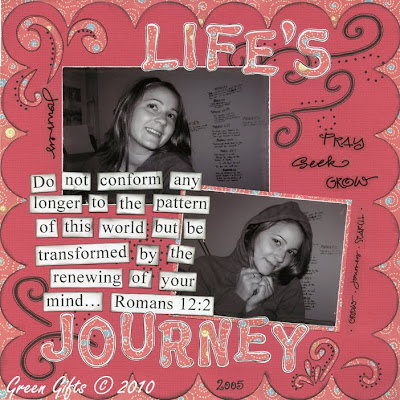 LIFE'S
journeys
PRAY
Seek
GROW
Do not conform any
longer to the pattern
of this world but be
transformed by the
renewing of your
mind... Romans 12:2
GROW - journey - SEARCH -
JOURNEY
2005
Green Gifts © 2010